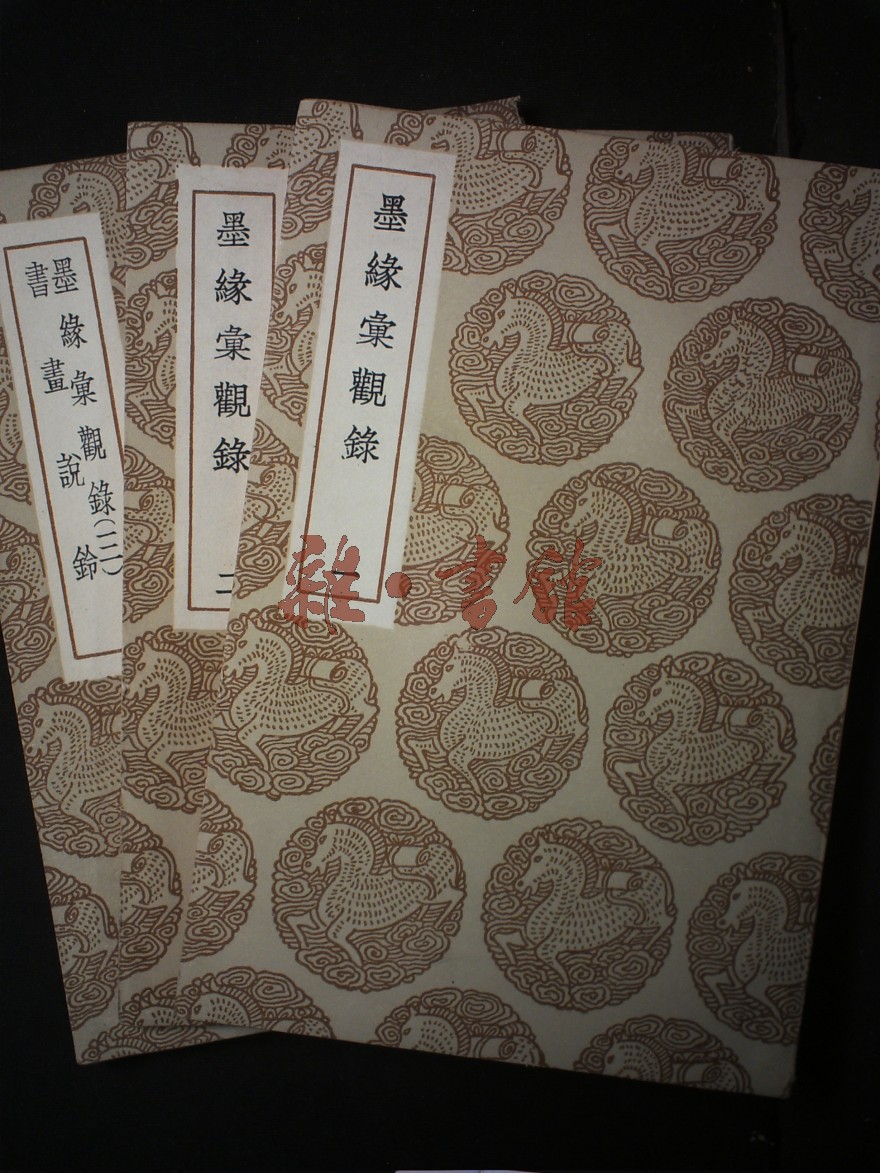 墨緣彙觀錄
一
墨緣彙觀錄
二
墨緣彙觀錄(三)
書畫說鈴
雜·書館